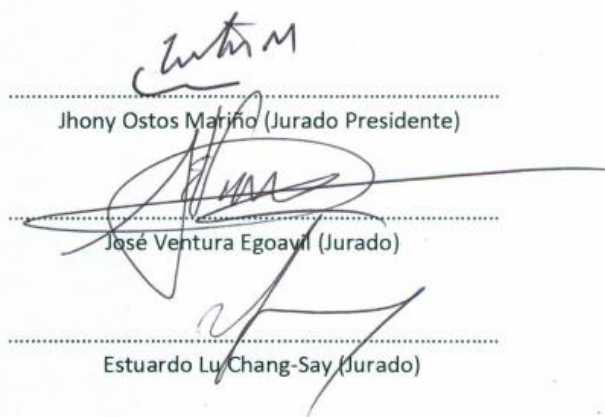 Jhony Ostos Mariño (Jurado Presidente)
José Ventura Egoavil (Jurado)
Estuardo Lu Chang-Say (Jurado)